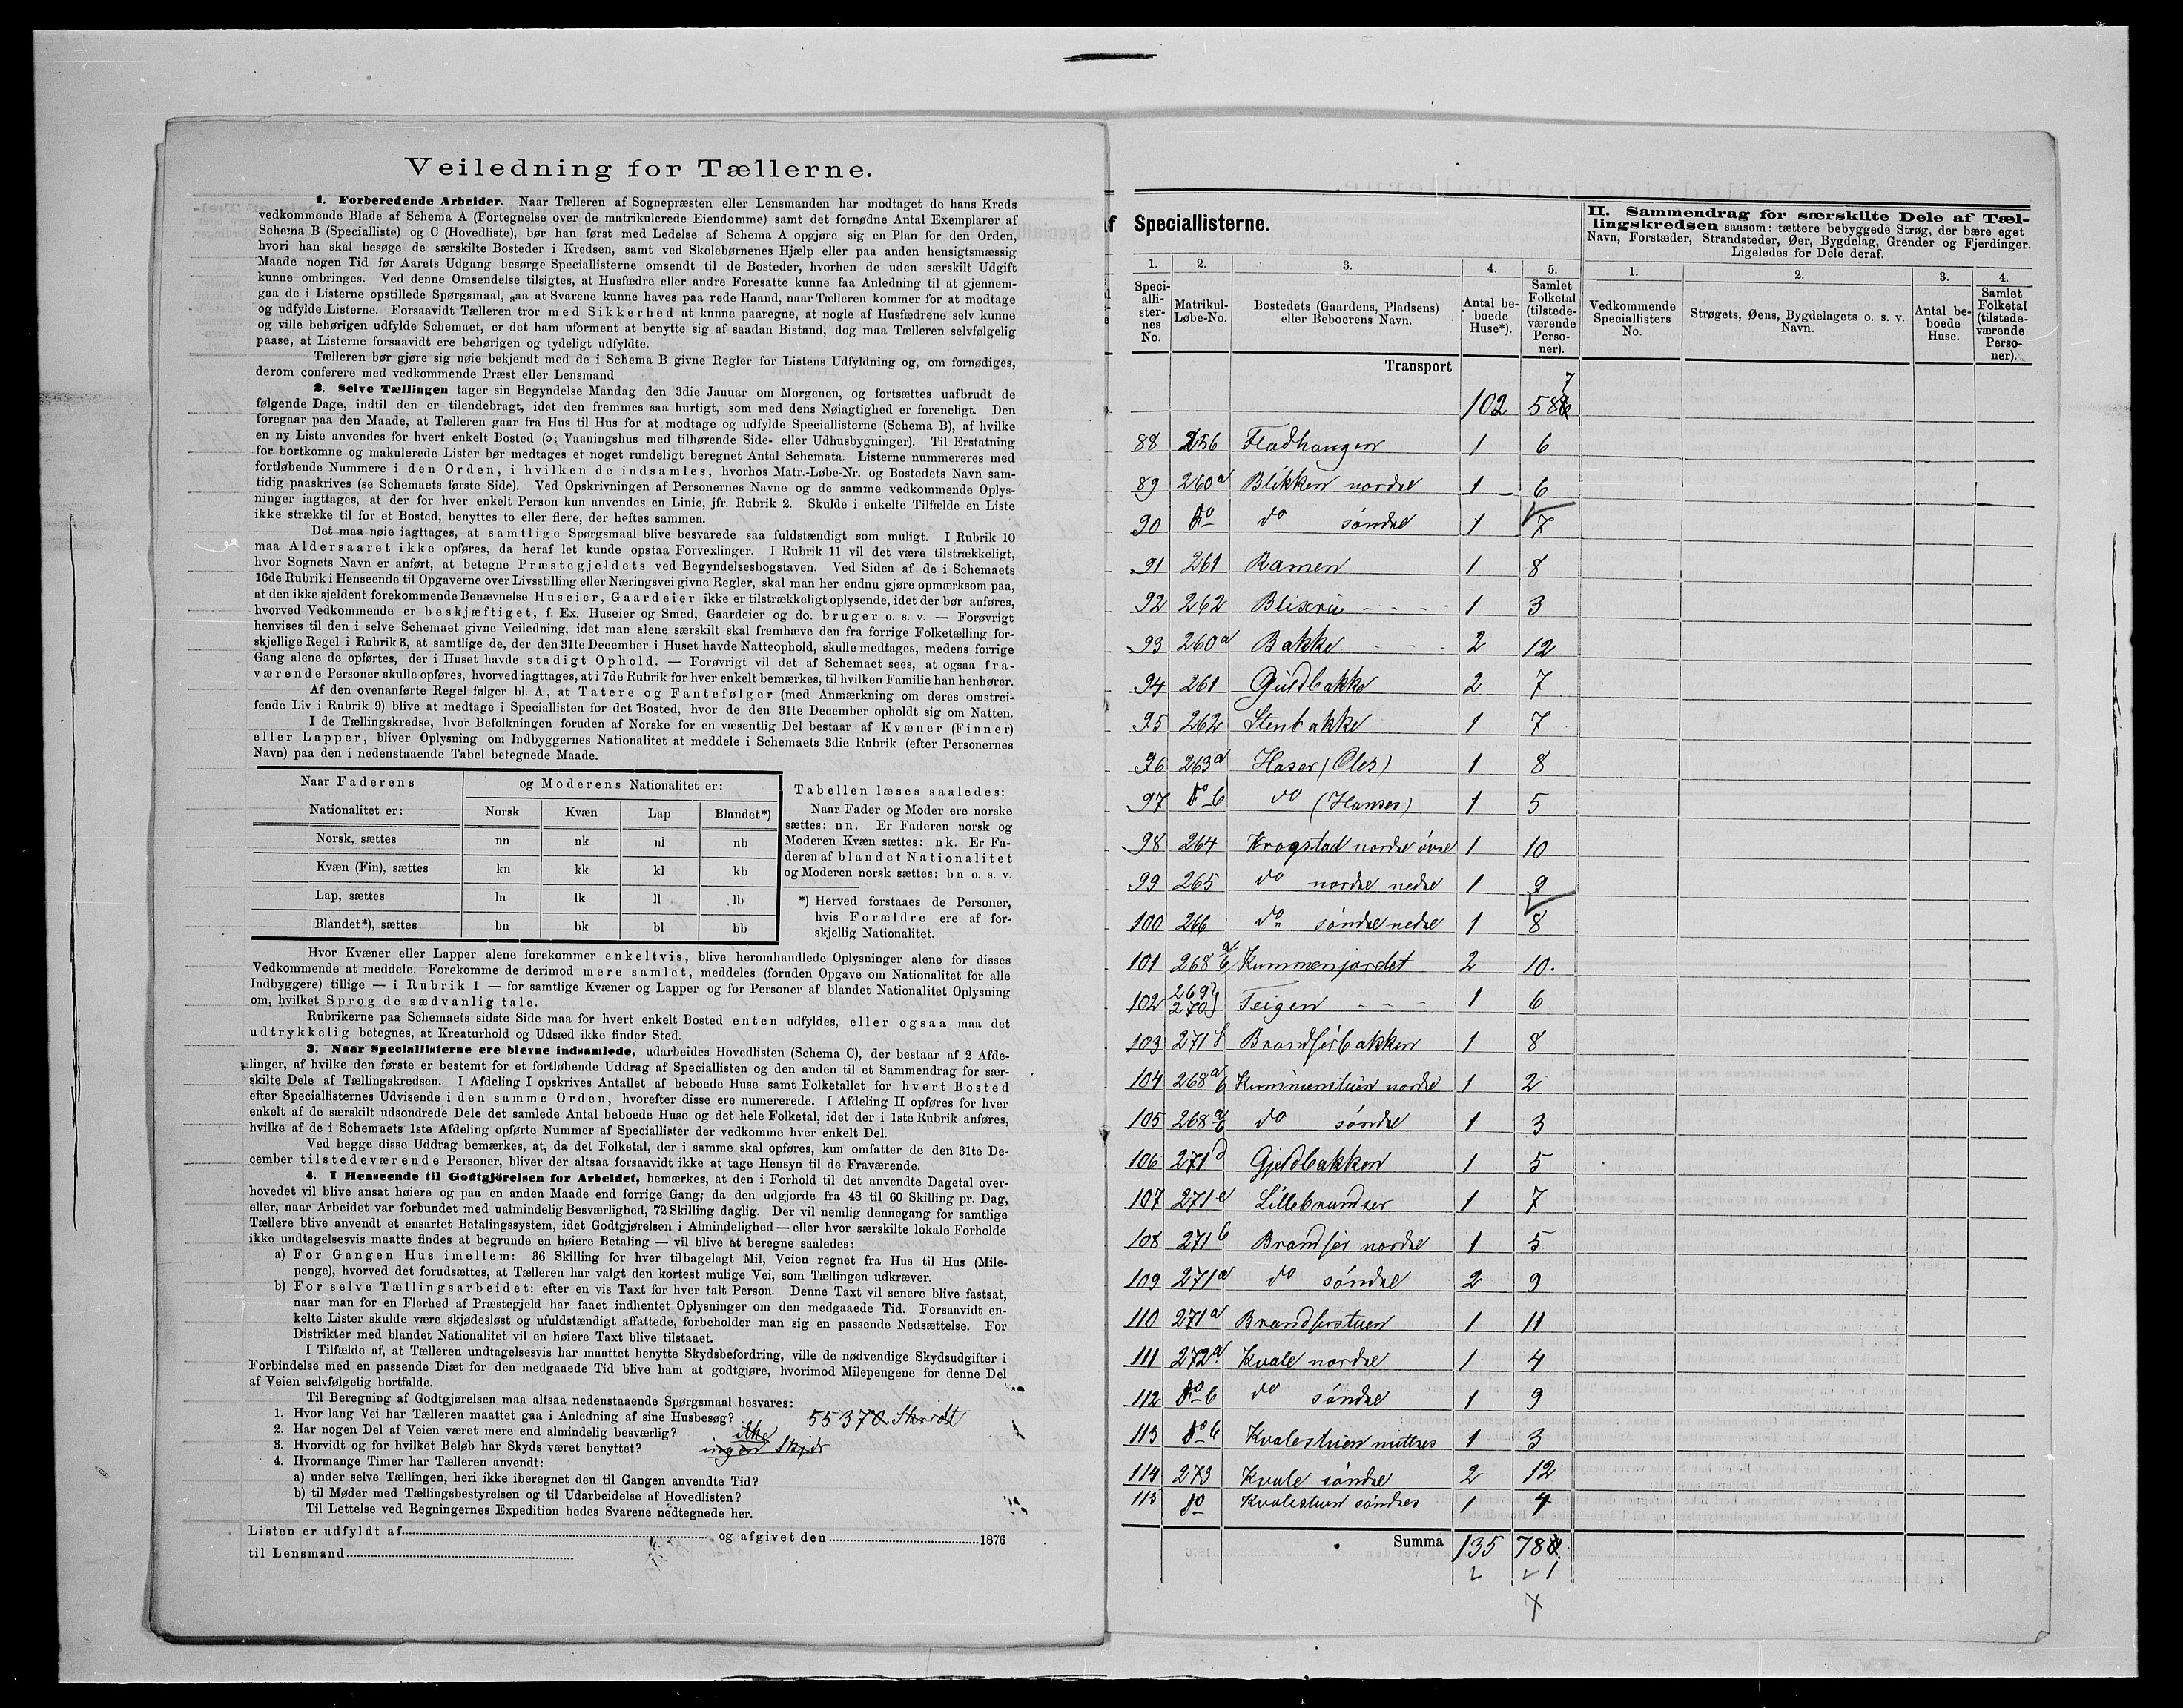 Veiledning for Tællerne.
1. Forberedende Arbeider. Naar Tælleren af Sognepræsten eller Lensmanden har modtaget de hans Kreds
vedkommende Blade af Schema A (Fortegnelse over de matrikulerede Eiendomme) samt det fornødne Antal Exemplarer af
Schema B (Specialliste) og C (Hovedliste), bør han først med Ledelse af Schema A opgjøre sig en Plan for den Orden,
hvori han skal besøge de særskilte Bosteder i Kredsen, samt ved Skolebørnenes Hjælp eller paa anden hensigtsmæssig
Maade nogen Tid før Aarets Udgang besørge Speciallisterne omsendt til de Bosteder, hvorhen de uden særskilt Udgift
kunne ombringes. Ved denne Omsendelse tilsigtes, at Husfædre eller andre Foresatte kunne faa Anledning til at gjennem-
gaa de i Listerne opstillede Spørgsmaal, saa at Svarene kunne haves paa rede Haand, naar Tælleren kommer for at modtage
og udfylde Listerne. Forsaavidt Tælleren tror med Sikkerhed at kunne paaregne, at nogle af Husfædrene selv kunne
og ville behørigen udfylde Schemaet, er det ham uforment at benytte sig af saadan Bistand, dog maa Tælleren selvfølgelig
paase, at Listerne forsaavidt ere behørigen og tydeligt udfyldte.
Tælleren bør gjøre sig nøie bekjendt med de i Schema B givne Regler for Listens Udfyldning og, om fornødiges,
derom conferere med vedkommende Præst eller Lensmand
2. Selve Tællingen tager sin Begyndelse Mandag den 3die Januar om Morgenen, og fortsættes uafbrudt de
følgende Dage, indtil den er tilendebragt, idet den fremmes saa hurtigt, som med dens Nøiagtighed er foreneligt. Den
foregaar paa den Maade, at Tælleren gaar fra Hus til Hus for at modtage og udfylde Speciallisterne (Schema B), af hvilke
en ny Liste anvendes for hvert enkelt Bosted (ɔ: Vaaningshus med tilhørende Side- eller Udhusbygninger). Til Erstatning
for bortkomne og makulerede Lister bør medtages et noget rundeligt beregnet Antal Schemata. Listerne nummereres med
fortløbende Nummere i den Orden, i hvilken de indsamles, hvorhos Matr.-Løbe-Nr. og Bostedets Navn sam-
tidig paaskrives (se Schemaets første Side). Ved Opskrivningen af Personernes Navne og de samme vedkommende Oplys-
ninger iagttages, at der for hver enkelt Person kun anvendes en Linie, jfr. Rubrik 2. Skulde i enkelte Tilfælde en Liste
ikke strække til for et Bosted, benyttes to eller flere, der heftes sammen.
Det maa nøie iagttages, at samtlige Spørgsmaal blive besvarede saa fuldstændigt som muligt. I Rubrik 10
maa Aldersaaret ikke opføres, da heraf let kunde opstaa Forvexlinger. I Rubrik 11 vil det være tilstrækkeligt,
hvor Sognets Navn er anført, at betegne Præstegjeldets ved Begyndelsesbogstaven. Ved Siden af de i Schemaets
16de Rubrik i Henseende til Opgaverne over Livsstilling eller Næringsvei givne Regler, skal man her endnu gjøre opmærksom paa,
at den ikke sjeldent forekommende Benævnelse Huseier, Gaardeier ikke er tilstrækkeligt oplysende, idet der bør anføres,
hvorved Vedkommende er beskjæftiget, f. Ex. Huseier og Smed, Gaardeier og do. bruger o. s. v. — Forøvrigt
henvises til den i selve Schemaet givne Veiledning, idet man alene særskilt skal fremhæve den fra forrige Folketælling for-
skjellige Regel i Rubrik 3, at samtlige de, der den 31te December i Huset havde Natteophold, skulle medtages, medens forrige
Gang alene de opførtes, der i Huset havde stadigt Ophold. — Forøvrigt vil det af Schemaet sees, at ogsaa fra-
værende Personer skulle opføres, hvorved iagttages, at i 7de Rubrik for hver enkelt bemærkes, til hvilken Familie han henhører.
Af den ovenanførte Regel følger bl. A, at Tatere og Fantefølger (med Anmærkning om deres omstrei-
fende Liv i Rubrik 9) blive at medtage i Speciallisten for det Bosted, hvor de den 31te December opholdt sig om Natten.
I de Tællingskredse, hvor Befolkningen foruden af Norske for en væsentlig Del bestaar af Kvæner (Finner)
eller Lapper, bliver Oplysning om Indbyggernes Nationalitet at meddele i Schemaets 3die Rubrik (efter Personernes
Navn) paa den i nedenstaaende Tabel betegnede Maade.
Naar Faderens Nationalitet er: og Moderens Nationalitet er:
Norsk Kvæn Lap Blandet*)
Norsk, sættes nn nk nl nb
Kvæn (Fin), sættes kn kk kl kb
Lap, sættes ln lk ll lb
Blandet*), sættes bn bk bl bb
Tabellen læses saaledes:
Naar Fader og Moder ere norske
sættes: nn. Er Faderen norsk og
Moderen Kvæn sættes: nk. Er Fa-
deren af blandet Nationalitet
og Moderen norsk sættes: bn o. s. v.
*) Herved forstaaes de Personer,
hvis Forældre ere af for-
skjellig Nationalitet.
Hvor Kvæner eller Lapper alene forekommer enkeltvis, blive heromhandlede Oplysninger alene for disses
Vedkommende at meddele. Forekomme de derimod mere samlet, meddeles (foruden Opgave om Nationalitet for alle
Indbyggere) tillige — i Rubrik 1 — for samtlige Kvæner og Lapper og for Personer af blandet Nationalitet Oplysning
om, hvilket Sprog de sædvanlig tale.
Rubrikerne paa Schemaets sidste Side maa for hvert enkelt Bosted enten udfyldes, eller ogsaa maa det
udtrykkelig betegnes, at Kreaturhold og Udsæd ikke finder Sted.
3. Naar Speciallisterne ere blevne indsamlede, udarbeides Hovedlisten (Schema C), der bestaar af 2 Afde-
linger, af hvilke den første er bestemt for et fortløbende Uddrag af Speciallisten og den anden til et Sammendrag for sær-
skilte Dele af Tællingskredsen. I Afdeling I opskrives Antallet af beboede Huse samt Folketallet for hvert Bosted
efter Speciallisternes Udvisende i den samme Orden, hvorefter disse ere numererede. I Afdeling II opføres for hver
enkelt af de særskilt udsondrede Dele det samlede Antal beboede Huse og det hele Folketal, idet der i 1ste Rubrik anføres,
hvilke af de i Schemaets 1ste Afdeling opførte Nummer af Speciallister der vedkomme hver enkelt Del.
Ved begge disse Uddrag bemærkes, at, da det Folketal, der i samme skal opføres, kun omfatter de den 31te De-
cember tilstedeværende Personer, bliver der altsaa forsaavidt ikke at tage Hensyn til de Fraværende.
4. I Henseende til Godtgjörelsen for Arbeidet, bemærkes, at den i Forhold til det anvendte Dagetal over-
hovedet vil blive ansat høiere og paa en anden Maade end forrige Gang; da den udgjorde fra 48 til 60 Skilling pr. Dag,
eller, naar Arbeidet var forbundet med ualmindelig Besværlighed, 72 Skilling daglig. Der vil nemlig dennegang for samtlige
Tællere blive anvendt et ensartet Betalingssystem, idet Godtgjørelsen i Almindelighed — eller hvor særskilte lokale Forholde
ikke undtagelsesvis maatte findes at begrunde en høiere Betaling — vil blive at beregne saaledes:
a) For Gangen Hus imellem: 36 Skilling for hver tilbagelagt Mil, Veien regnet fra Hus til Hus (Mile-
penge), hvorved det forudsættes, at Tælleren har valgt den kortest mulige Vei, som Tællingen udkræver.
b) For selve Tællingsarbeidet: efter en vis Taxt for hver talt Person. Denne Taxt vil senere blive fastsat,
naar man for en Flerhed af Præstegjeld har faaet indhentet Oplysninger om den medgaaede Tid. Forsaavidt en-
kelte Lister skulde være skjødesløst og ufuldstændigt affattede, forbeholder man sig en passende Nedsættelse. For
Distrikter med blandet Nationalitet vil en høiere Taxt blive tilstaaet.
I Tilfælde af, at Tælleren undtagelsesvis har maattet benytte Skydsbefordring, ville de nødvendige Skydsudgifter i
Forbindelse med en passende Diæt for den medgaaede Tid blive ham at godtgjøre, hvorimod Milepengene for denne Del
af Veien selvfølgelig bortfalde.
Til Beregning af Godtgjørelsen maa altsaa nedenstaaende Spørgsmaal besvares:
1. Hvor lang Vei har Tælleren maattet gaa i Anledning af sine Husbesøg? 55370 Skridt
2. Har nogen Del af Veien været mere end almindelig besværlig? ikke
3. Hvorvidt og for hvilket Beløb har Skyds været benyttet? ingen Skjds
4. Hvormange Timer har Tælleren anvendt:
a) under selve Tællingen, heri ikke iberegnet den til Gangen anvendte Tid?
b) til Møder med Tællingsbestyrelsen og til Udarbeidelse af Hovedlisten?
Til Lettelse ved Regningernes Expedition bedes Svarene nedtegnede her.
Listen er udfyldt af og afgivet den 1876
til Lensmand
af Speciallisterne.
1. 2. 3. 4. 5.
Speci-alli-ster-nes No. Matrikul-Løbe-No. Bostedets (Gaardens, Pladsens) eller Beboerens Navn. Antal be-boede Huse*). Samlet Folketal (tilstede-værende Perso-ner).
Transport 102 586 7
88 256 Fladhaugen 1 6
89 260a Blikken nordre 1 6
90 do do søndre 1 7
91 261 Ramen 1 8
92 262 Blixrue 1 3
93 260a Bakke 2 12
94 261 Guldbakke 2 7
95 262 Stenbakke 1 7
96 263a Haser (Oles) 1 8
97 do b do (Hanses) 1 5
98 264 Krogstad nordre øvre 1 10
99 265 do nordre nedre 1 9
100 266 do søndre nedre 1 8
101 268 a/b Kummenjordet 2 10.
102 269 270 Teigen 1 6
103 271f Brandserbakken 1 8
104 268 a/b Kummenstuen nordre 1 2
105 268 a/b do søndre 1 3
106 271d Gjeldbakken 1 5
107 271e Lillebrandser 1 7
108 271b Brandser nordre 1 5
109 271a do søndre 2 9
110 271a Brandserstuen 1 11
111 272a Kvale nordre 1 4
112 do b do søndre 1 9
113 do b Kvalestuen mittres 1 3
114 273 Kvale søndre 2 12
115 do Kvalestuen søndres 1 4
Summa 135 780
1
II. Sammendrag for særskilte Dele af Tæl-
lingskredsen saasom: tættere bebyggede Strøg, der bære eget
Navn, Forstæder, Strandsteder, Øer, Bygdelag, Grender og Fjerdinger.
Ligeledes for Dele deraf.
1. 2. 3. 4.
Vedkommende Speciallisters No. Strøgets, Øens, Bygdelagets o. s. v. Navn. Antal be-boede Huse. Samlet Folketal (tilstede-værende Perso-ner).